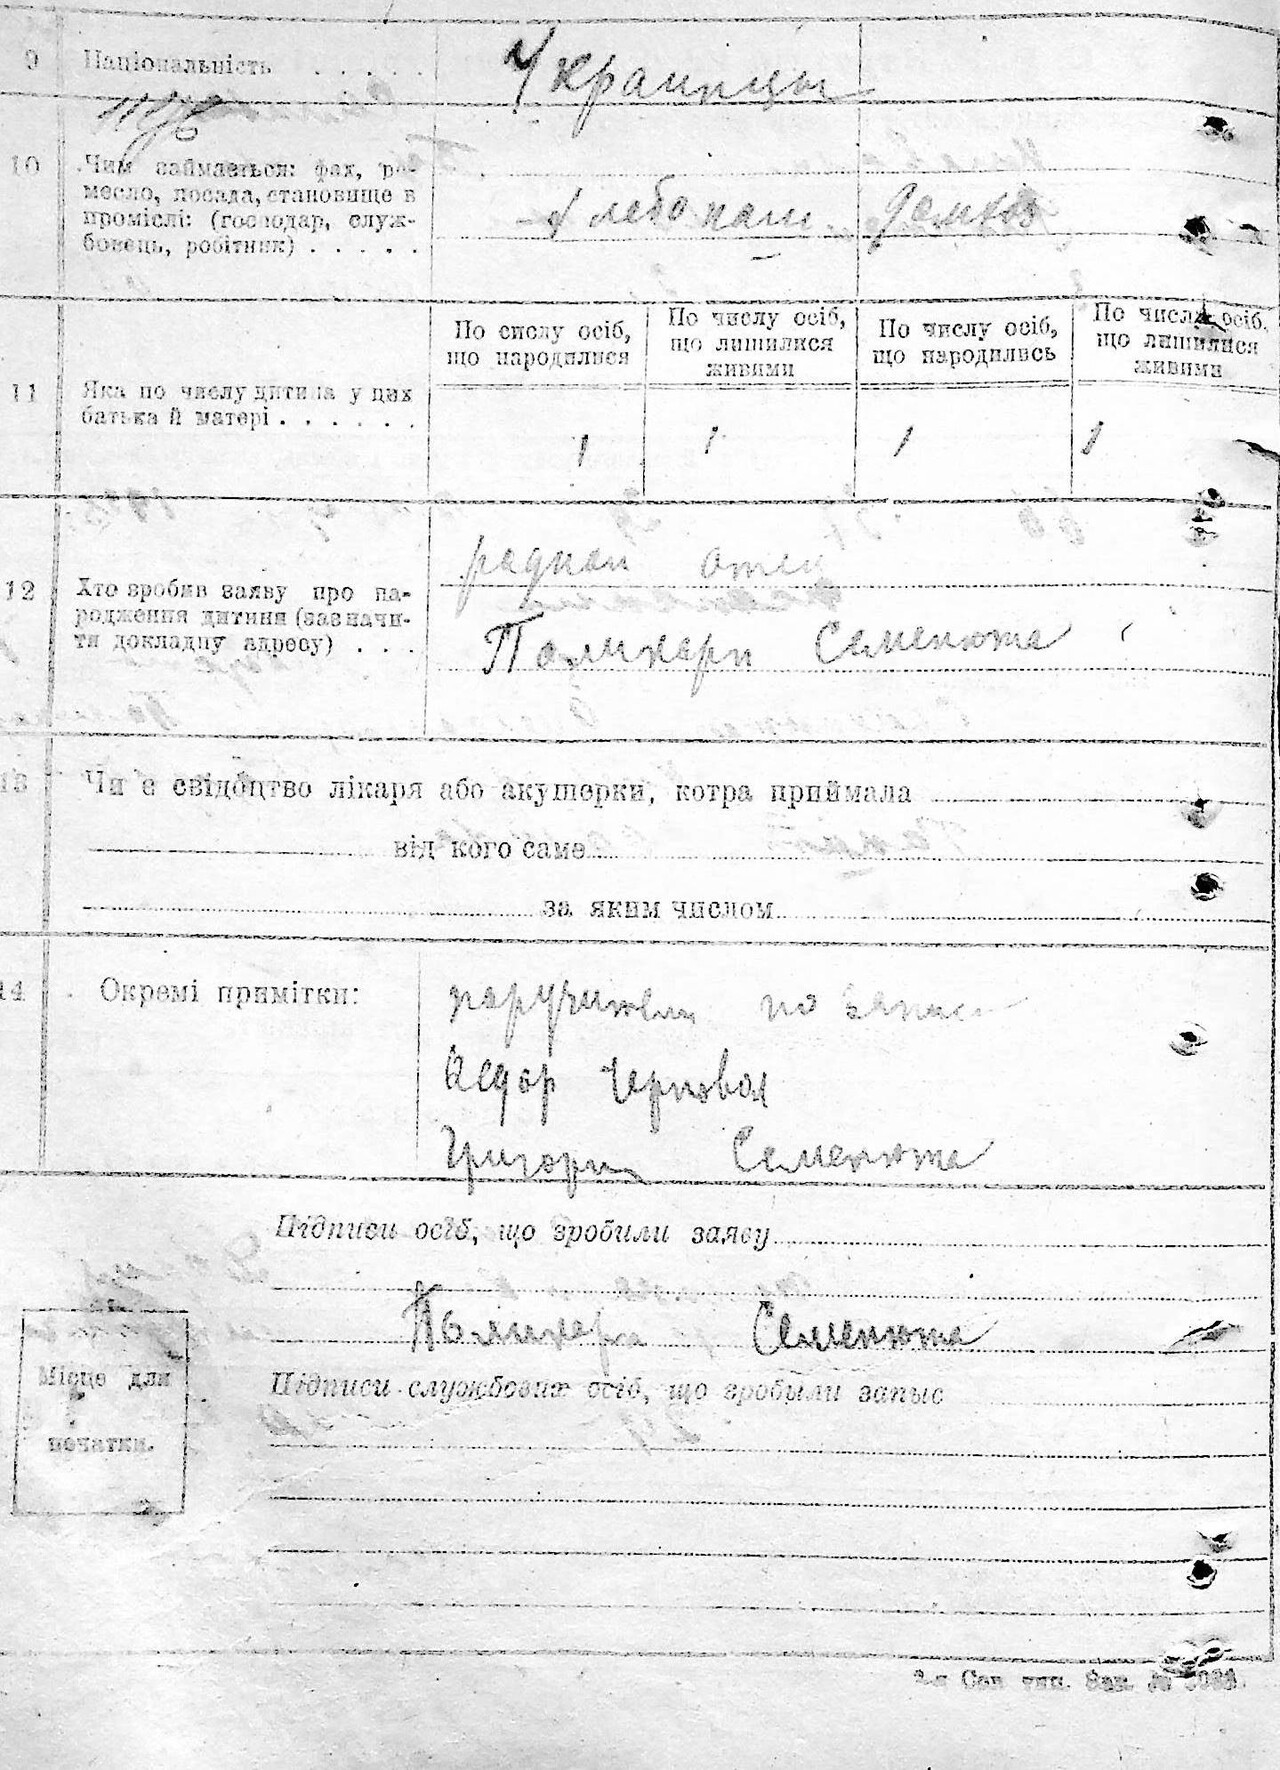 9 Національність . . . . . Украинцы
10 Чим займається: фах, ре-
месло, посада, становище в
промислі: (господар, служ-
бовець, робітник) . . . . .
По числу осіб, що народилися
По числу осіб, що лишилися живими
По числу осіб, що народились
По числу осіб, що лишилися живими
11 Яка по числу дитина у цих
батька й матері . . . . . .
1 1 1 1
родной отец
12 Хто зробив заяву про на-
родження дитини (зазначи-
ти докладну адресу) . . .
Поликарп Семенюта
13 Чи є свідоцтво лікаря або акушерки, котра приймала
від кого саме
за яким числом
14 Окремі примітки:
поручители по записи
Федор Черновол
Григорий Семенюта
Підписи осіб, що зробили заяву
Поликарп Семенюта
Місце для
печатки.
Підписи службових осіб, що зробыли запыс